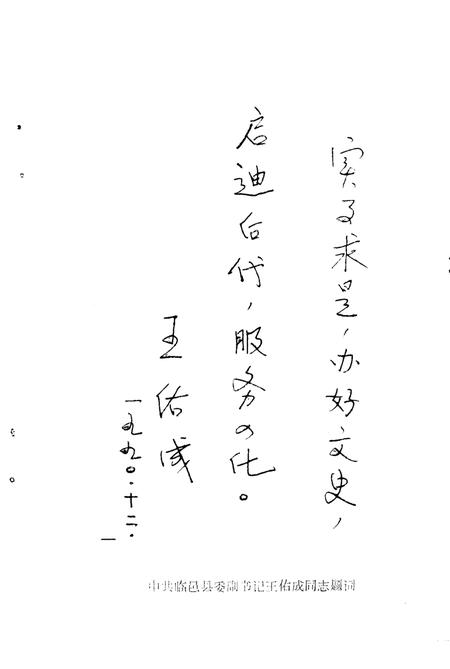 实事求是，办好文史，
启迪后代，服务四化。
王佑成
一九九〇.十二.
中共临邑县委副书记王佑成同志题词